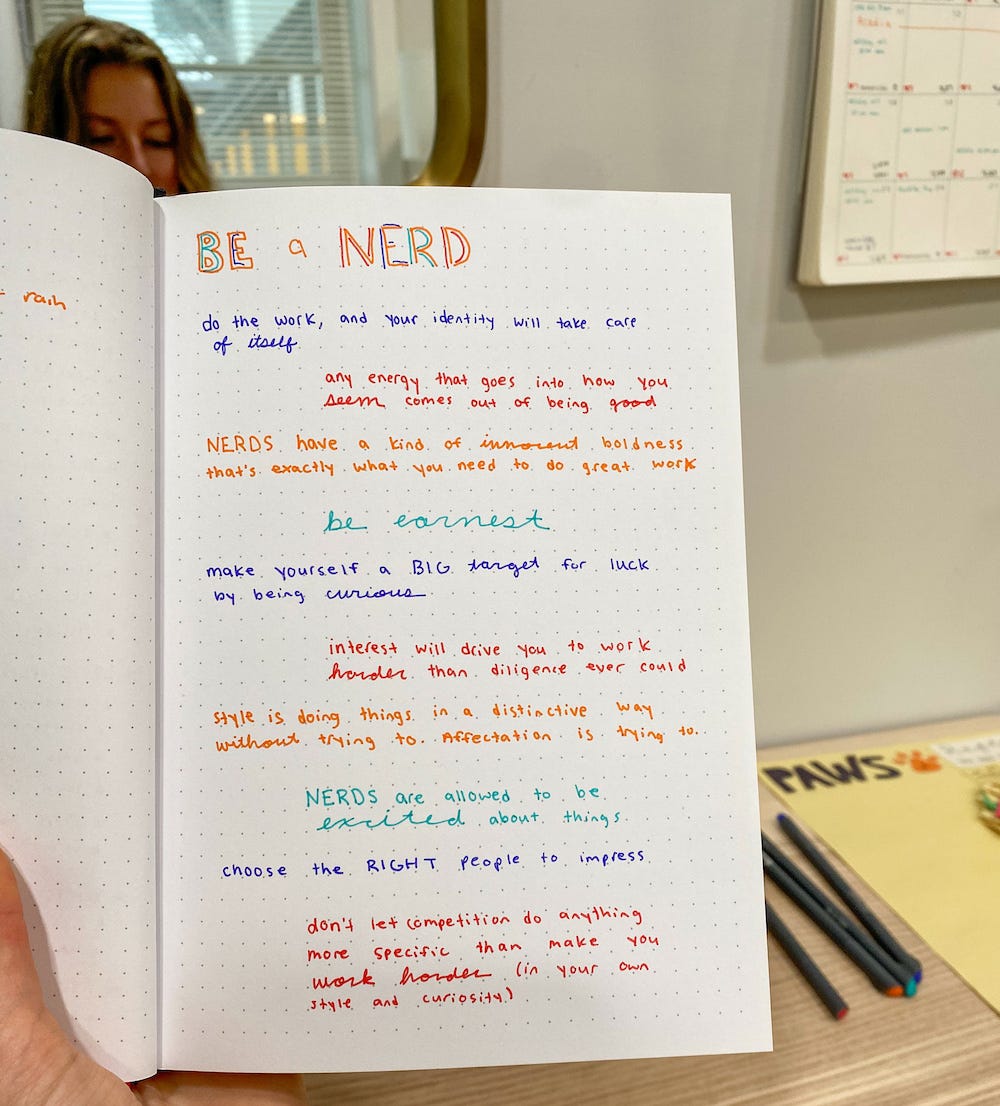 BE a NERD
do the work, and your identity will take care
of itself
any energy that goes into how you
seem comes out of being good
NERDS have a kind of innocent boldness
that's exactly what you need to do great work
be earnest
make yourself a BIG target for luck
by being curious
interest will drive you to work
harder than diligence ever could
style is doing things in a distinctive way
without trying to. Affectation is trying to.
NERDS are allowed to be
excited about things
choose the RIGHT people to impress
don't let competition do anything
more specific than make you
work harder (in your own
style and curiosity)
PAWS